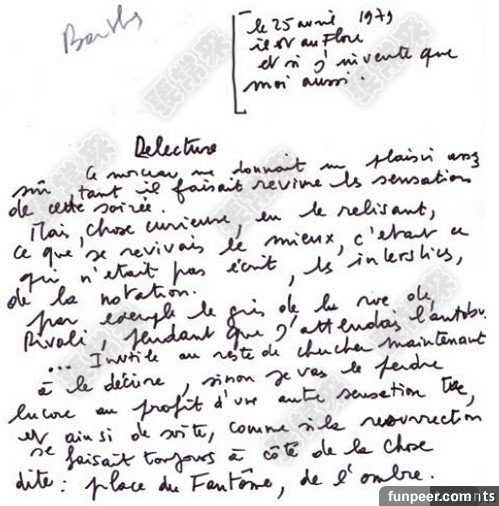 Barthes
le 25 avril 1979
il est au Flore
et si j'invente que
moi aussi.
Delecture
Ce morceau me donnait un plaisir assez
sûr, tant il faisait revivre les sensations
de cette soirée.
Mais, chose curieuse, en le relisant,
ce que je revivais le mieux, c'était ce
qui n'était pas écrit, les interstices,
de la notation.
par exemple le gris de la rue de
Rivoli, pendant que j'attendais l'autobus
... Inutile au reste de chercher maintenant
à le décrire, sinon je vais le perdre
encore au profit d'une autre sensation tue,
et ainsi de suite, comme si la resurrection
se faisait toujours à côté de la chose
dite : place du Fantôme, de l'ombre.
funpeer.comnts